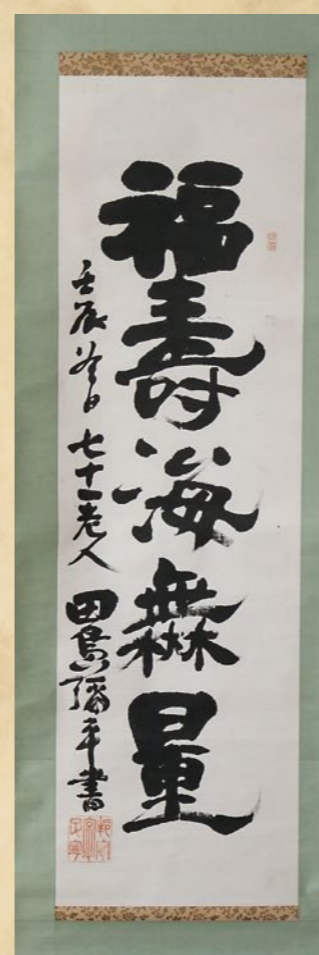 福壽海無量
壬辰冬日七十一老人
田島彌平書